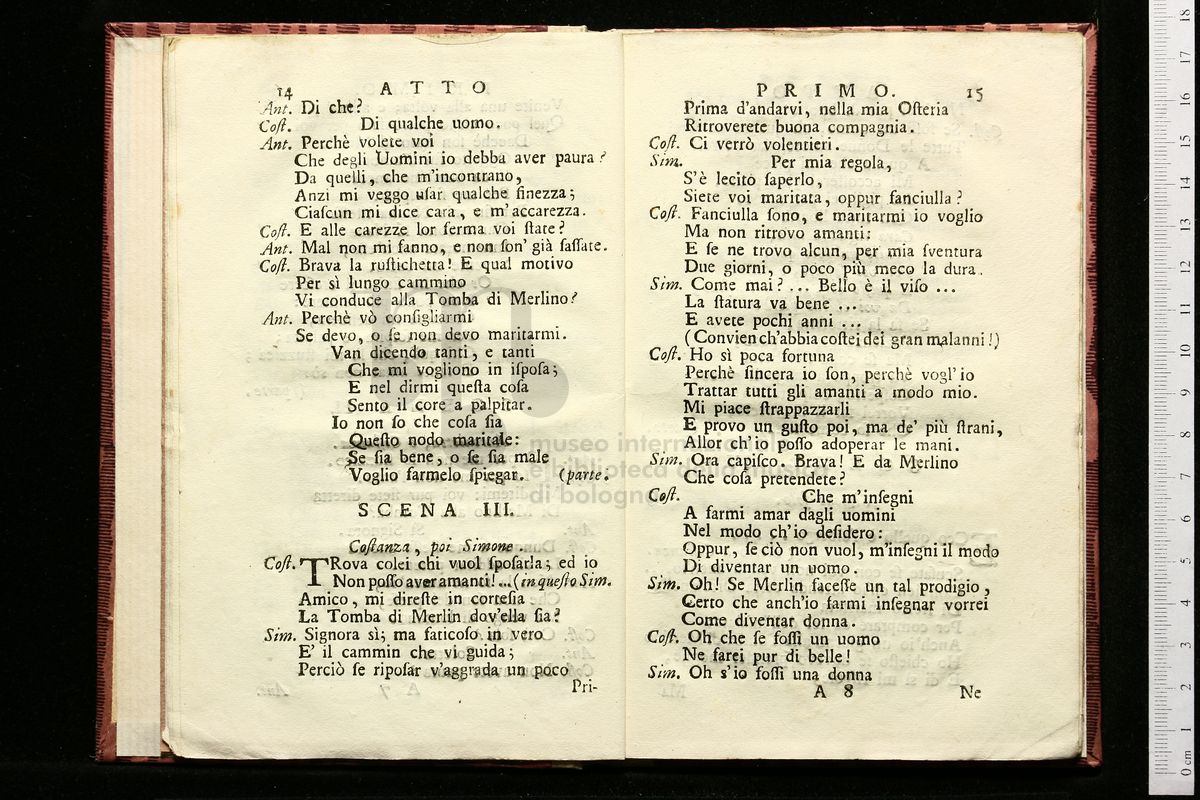 14 ATTO
Ant. Di che?
Coſt. Di qualche uomo.
Ant. Perchè volete voi
Che degli Uomini io debba aver paura?
Da quelli, che m'incontrano,
Anzi mi veggo uſar qualche finezza;
Ciaſcun mi dice cara, e m'accarezza.
Coſt. E alle carezze lor ferma voi ſtate?
Ant. Mal non mi fanno, e non ſon' già ſaſſate.
Coſt. Brava la ruſtichetta! E qual motivo
Per sì lungo cammino
Vi conduce alla Tomba di Merlino?
Ant. Perchè vò conſigliarmi
Se devo, o ſe non devo maritarmi.
Van dicendo tanti, e tanti
Che mi vogliono in iſpoſa;
E nel dirmi queſta coſa
Sento il core a palpitar.
Io non ſo che coſa ſia
Queſto nodo maritale:
Se ſia bene, o ſe ſia male
Voglio farmelo ſpiegar. (parte.
SCENA III.
Coſtanza, poi Simone.
Coſt. TRova colei chi vuol ſpoſarla; ed io
Non poſſo aver amanti!...(in queſto Sim.
Amico, mi direſte in corteſia
La Tomba di Merlin dov'ella ſia?
Sim. Signora sì; ma faticoſo in vero
E' il cammin che vi guida;
Perciò ſe ripoſar v'aggrada un poco
Pri-
PRIMO. 15
Prima d'andarvi, nella mia Oſteria
Ritroverete buona compagnia.
Coſt. Ci verrò volentieri.
Sim. Per mia regola,
S'è lecito ſaperlo,
Siete voi maritata, oppur fanciulla?
Coſt. Fanciulla ſono, e maritarmi io voglio
Ma non ritrovo amanti:
E ſe ne trovo alcun, per mia ſventura
Due giorni, o poco più meco la dura.
Sim. Come mai?... Bello è il viſo ...
La ſtatura va bene ...
E avete pochi anni ...
(Convien ch'abbia coſtei dei gran malanni!)
Coſt. Ho sì poca fortuna
Perchè ſincera io ſon, perchè vogl'io
Trattar tutti gli amanti a modo mio.
Mi piace ſtrappazzarli
E provo un guſto poi, ma de' più ſtrani,
Allor ch'io poſſo adoperar le mani.
Sim. Ora capiſco. Brava! E da Merlino
Che coſa pretendete?
Coſt. Che m'inſegni
A farmi amar dagli uomini
Nel modo ch'io deſidero:
Oppur, ſe ciò non vuol, m'inſegni il modo
Di diventar un uomo.
Sim. Oh! Se Merlin faceſſe un tal prodigio,
Certo che anch'io farmi inſegnar vorrei
Come diventar donna.
Coſt. Oh che ſe foſſi un uomo
Ne farei pur di belle!
Sim. Oh s'io foſſi una donna
A 8 Ne